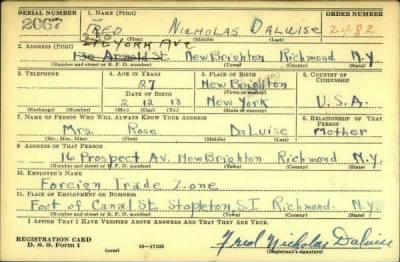 SERIAL NUMBER 1. NAME (Print) ORDER NUMBER
2067 FRED NICHOLAS DALUISE 2482
(First) (Middle) (Last)
YORK AVE
2. ADDRESS (Print)
Arnold St. New Brighton Richmond N.Y.
(Number and street or R. F. D. number) (Town) (County) (State)
3. TELEPHONE 4. AGE IN YEARS 5. PLACE OF BIRTH 6. COUNTRY OF CITIZENSHIP
27 New Brighton
DATE OF BIRTH (Town or county)
2 12 13 New York U.S.A.
(Exchange) (Number) (Mo.) (Day) (Yr.) (State or country)
7. NAME OF PERSON WHO WILL ALWAYS KNOW YOUR ADDRESS 8. RELATIONSHIP OF THAT PERSON
Mrs. Rose DaLuise Mother
(Mr., Mrs., Miss) (First) (Middle) (Last)
9. ADDRESS OF THAT PERSON
16 Prospect Av. New Brighton Richmond N.Y.
(Number and street or R. F. D. number) (Town) (County) (State)
10. EMPLOYER'S NAME
Foreign Trade Zone
11. PLACE OF EMPLOYMENT OR BUSINESS
Foot of Canal St. Stapleton, S.I Richmond N.Y.
(Number and street or R. F. D. number) (Town) (County) (State)
I AFFIRM THAT I HAVE VERIFIED ABOVE ANSWERS AND THAT THEY ARE TRUE.
REGISTRATION CARD
D. S. S. Form 1 (over) 16—17105 Fred Nicholas Daluise
(Registrant's signature)